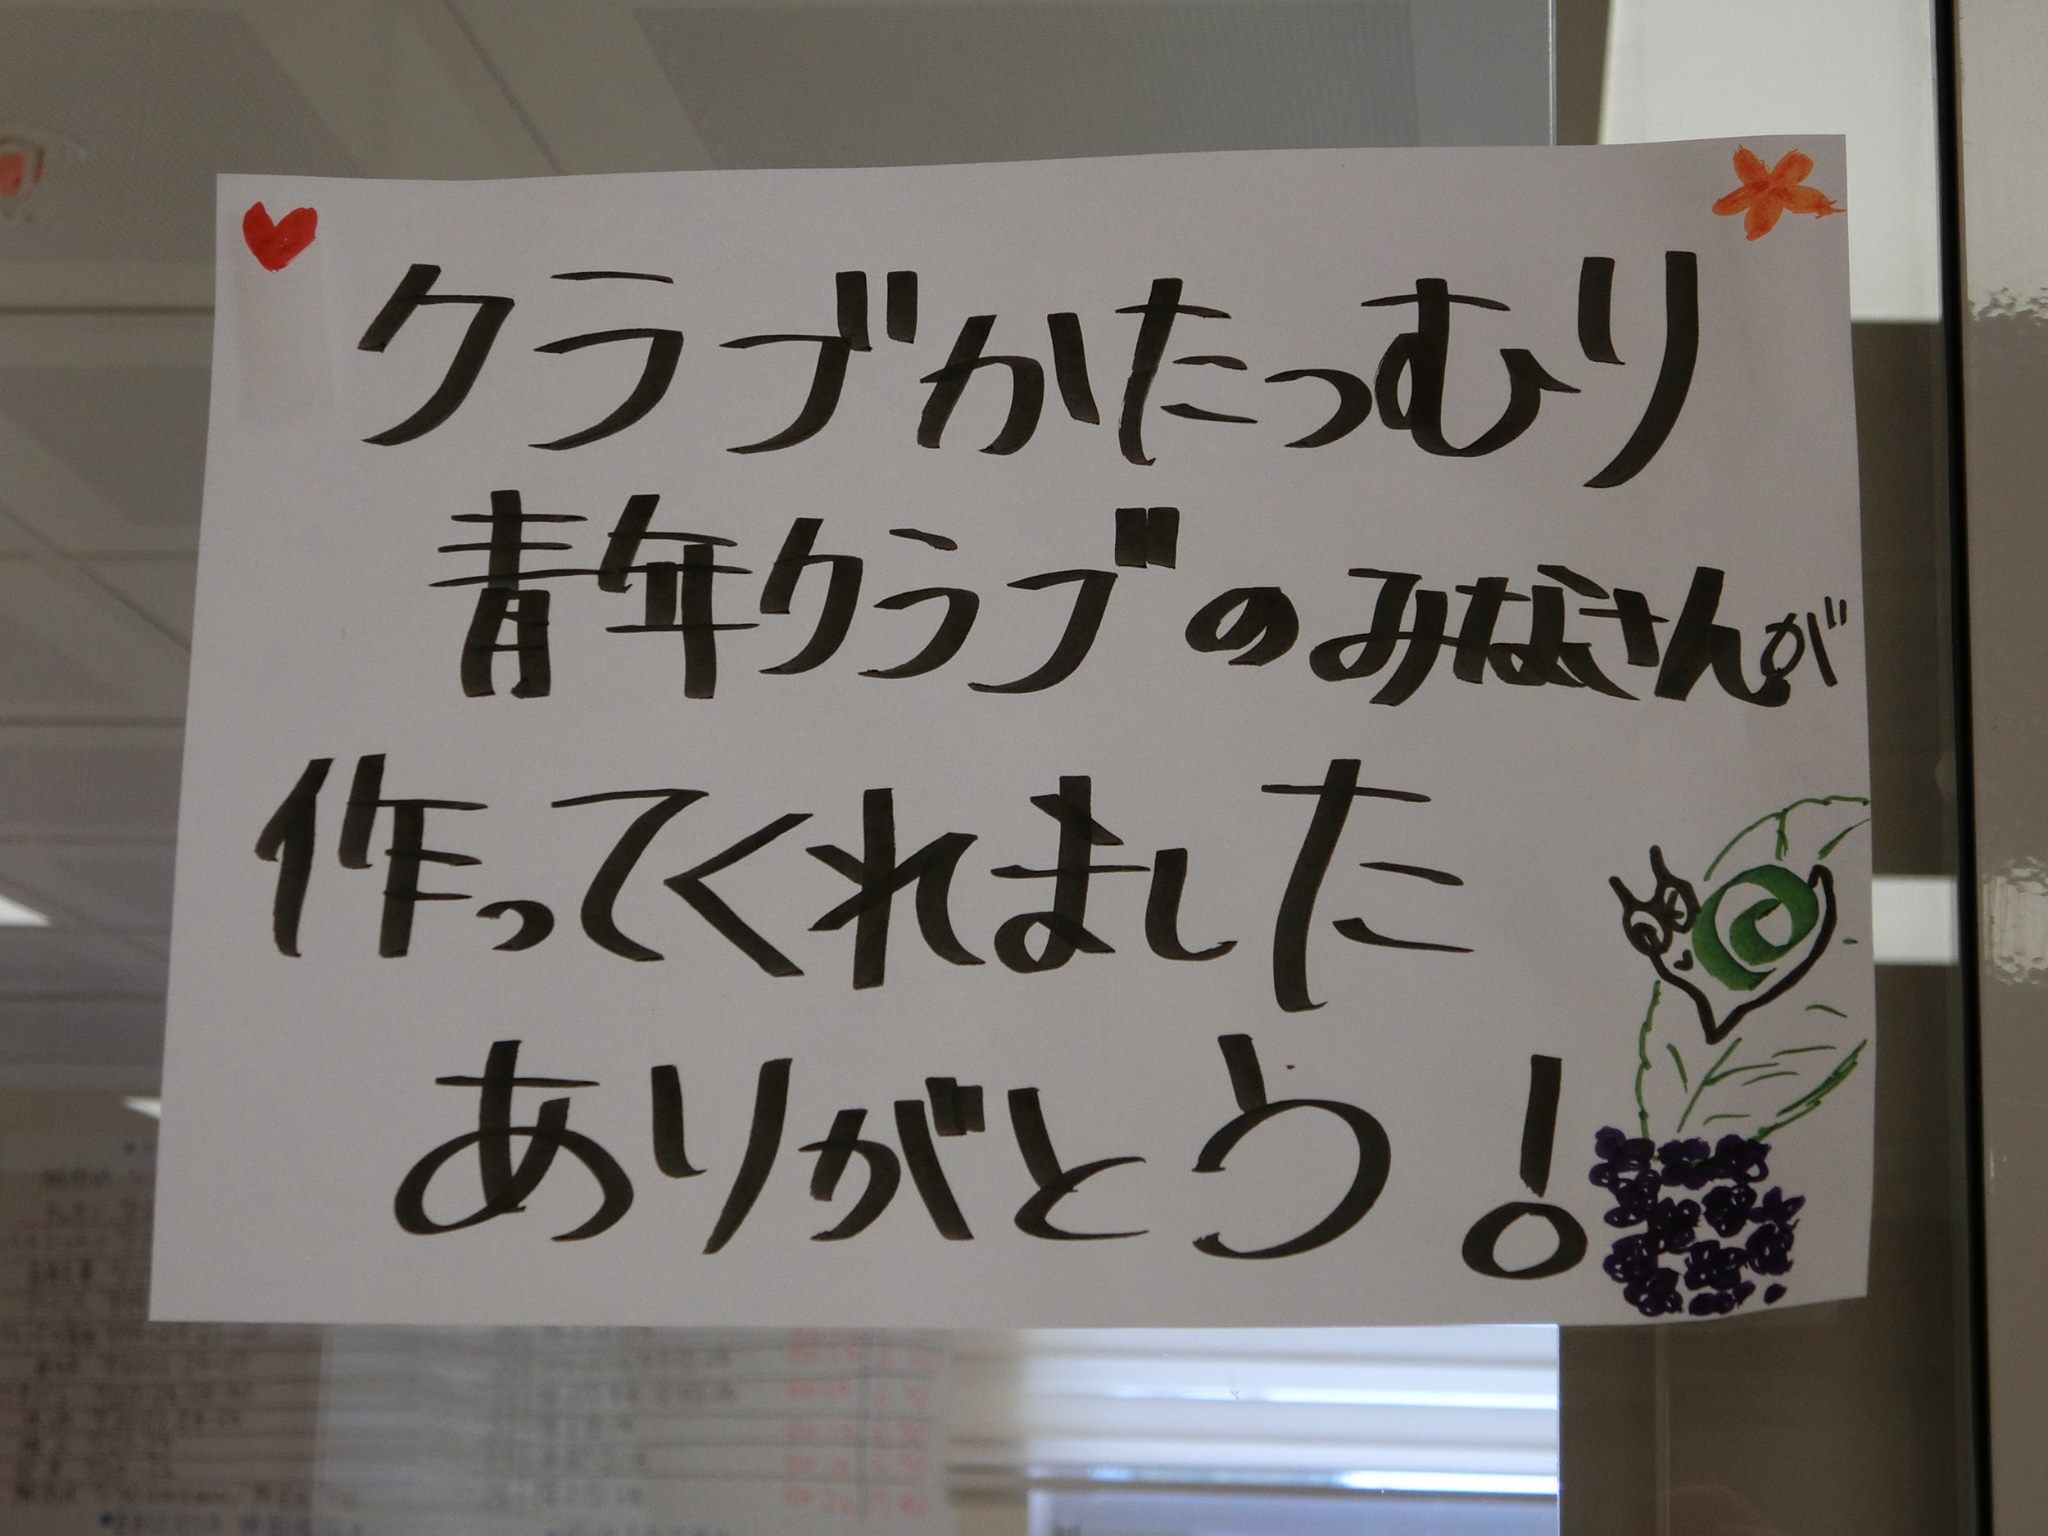 クラブかたつむり
青年クラブのみなさんが
作ってくれました
ありがとう!